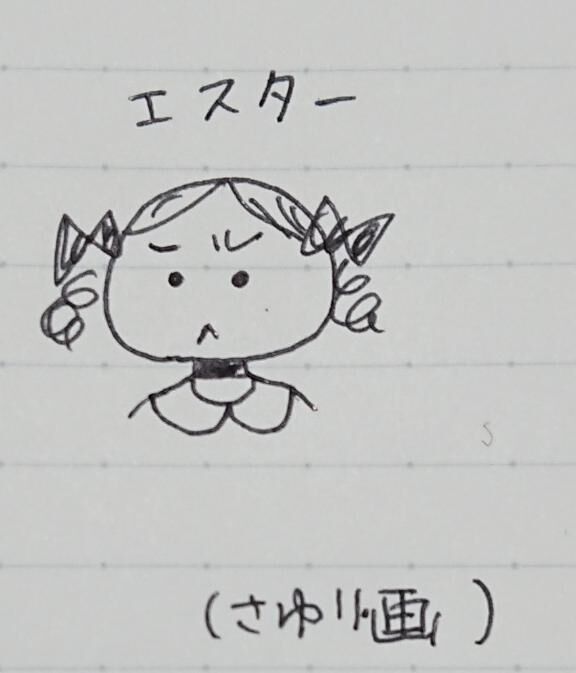 エスター
(さゆり画)